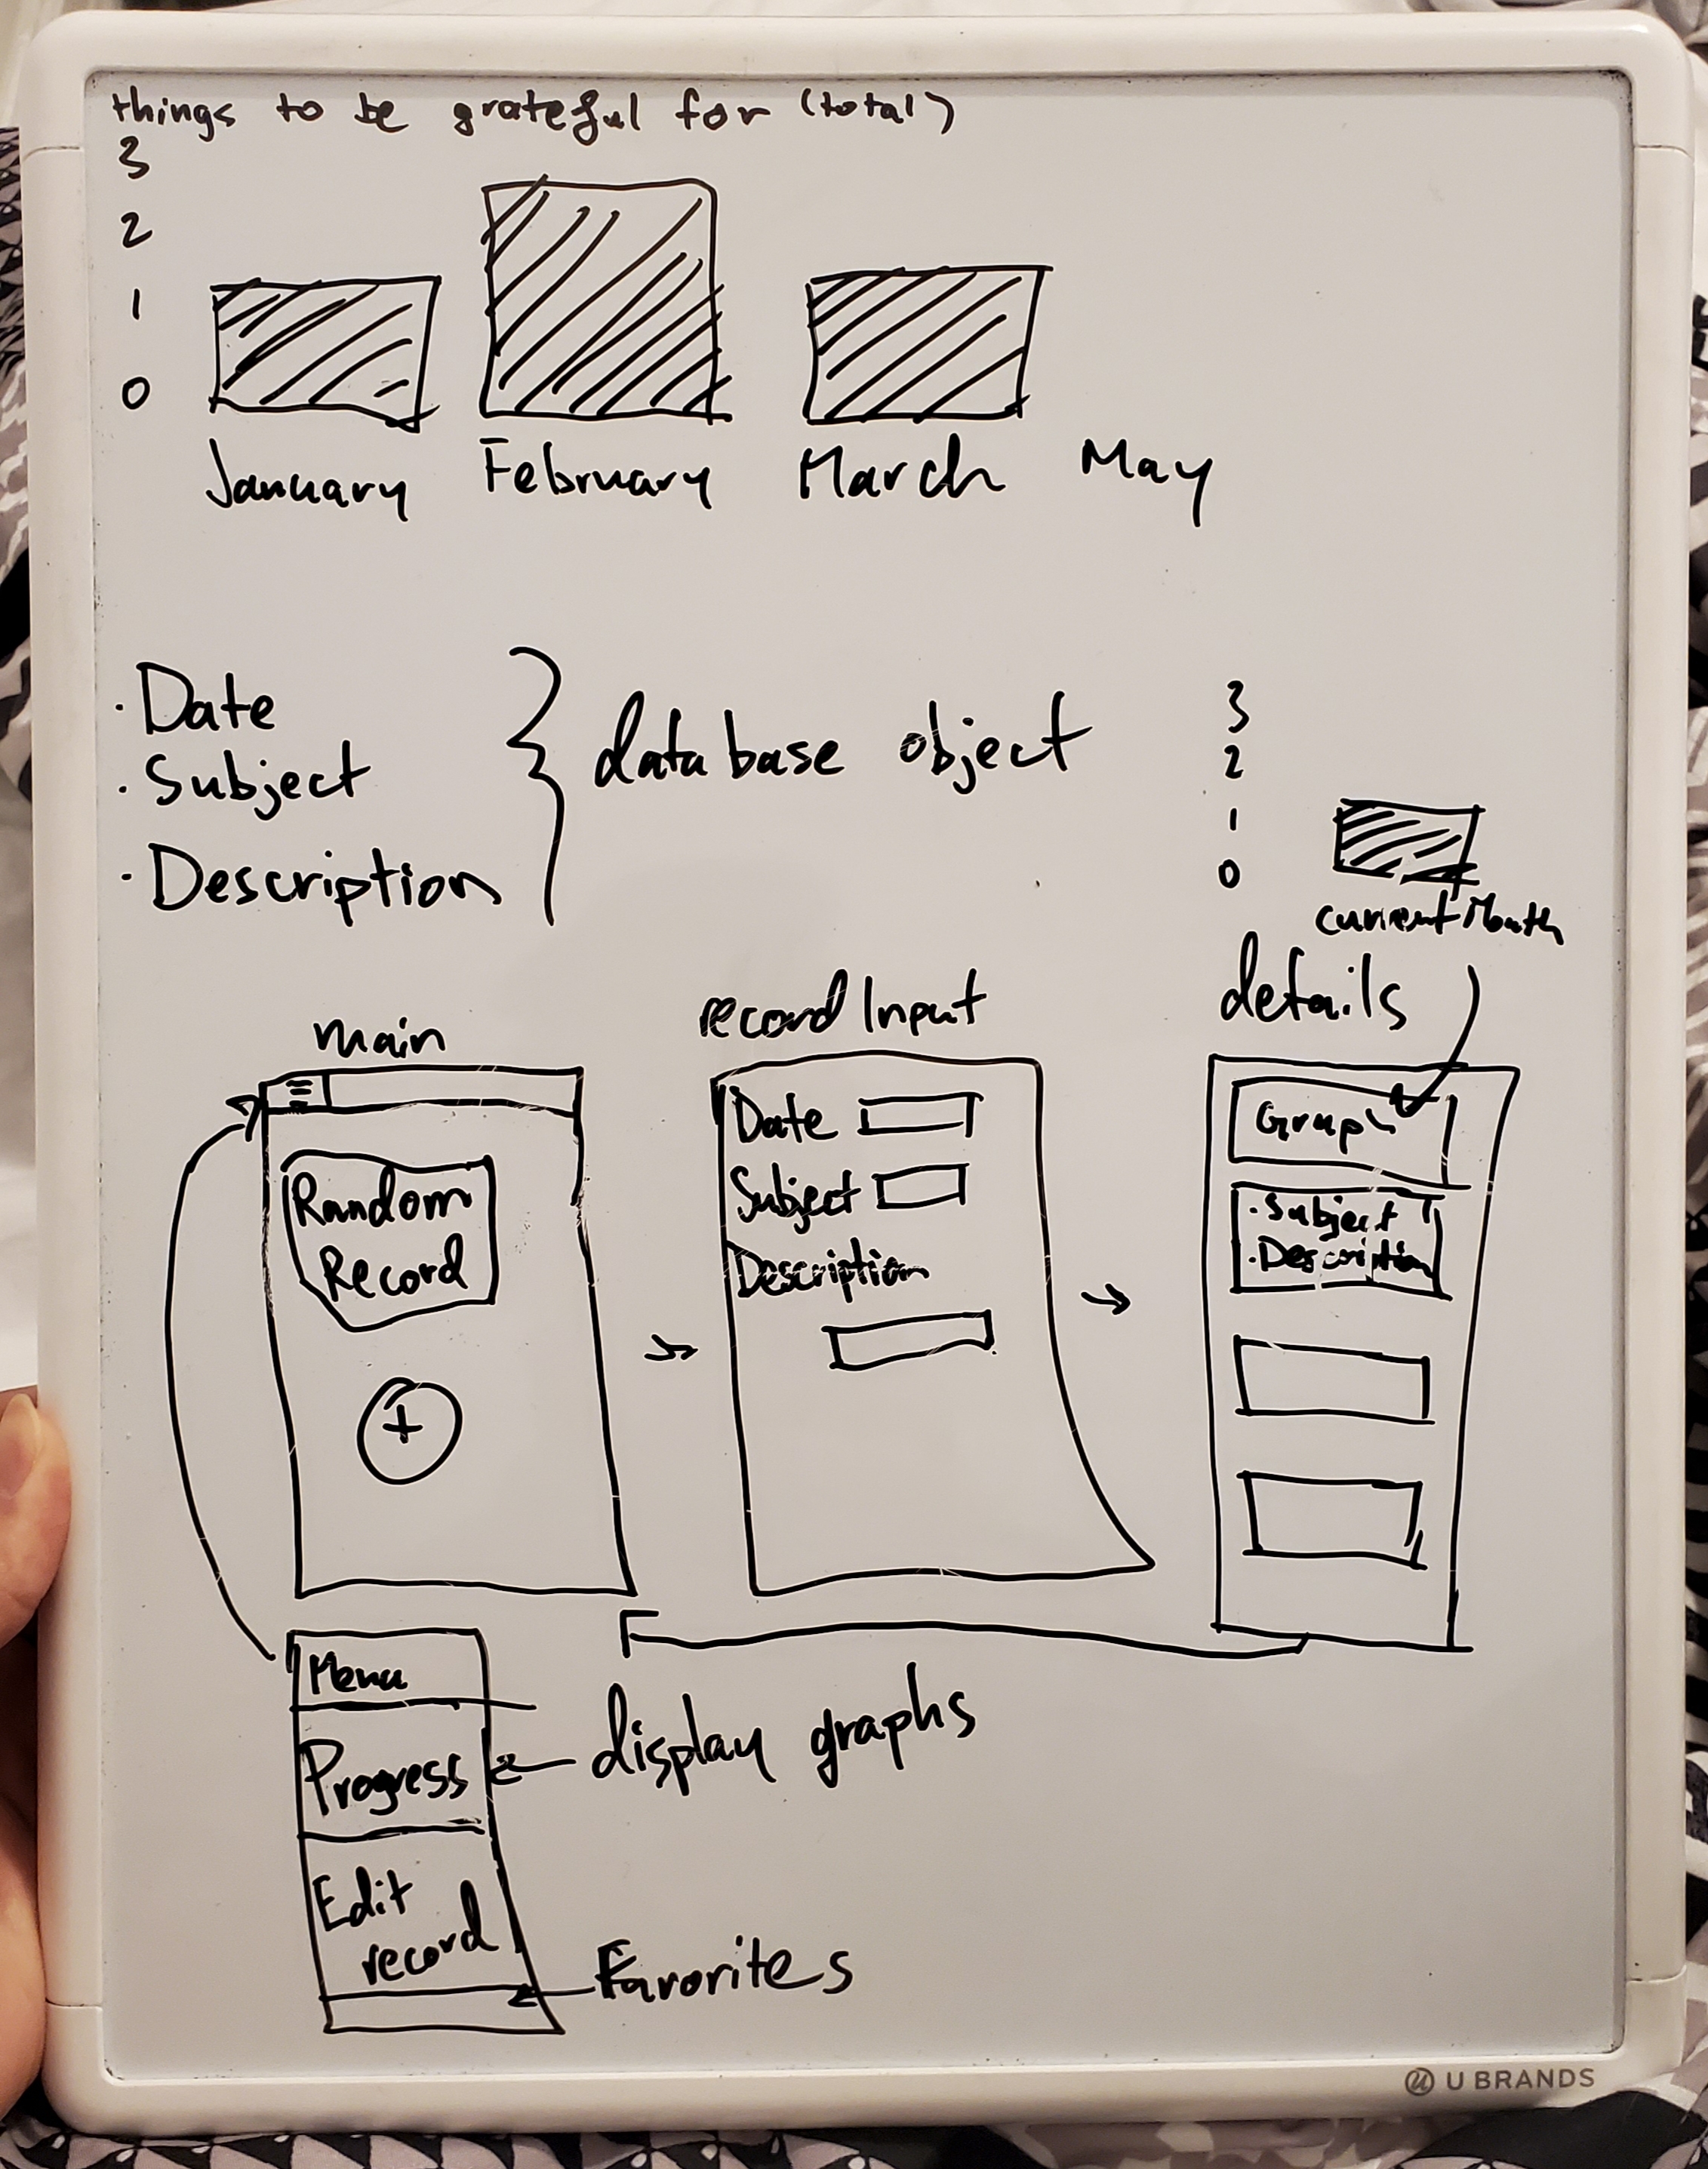 things to be grateful for (total)
3
2
1
0
January February March May
· Date
· Subject
· Description
database object
3
2
1
0
current Month
main
Random
Record
+
record Input
Date
Subject
Description
details
Graph
· Subject
· Description
Menu
Progress
display graphs
Edit
record
Favorites
U BRANDS